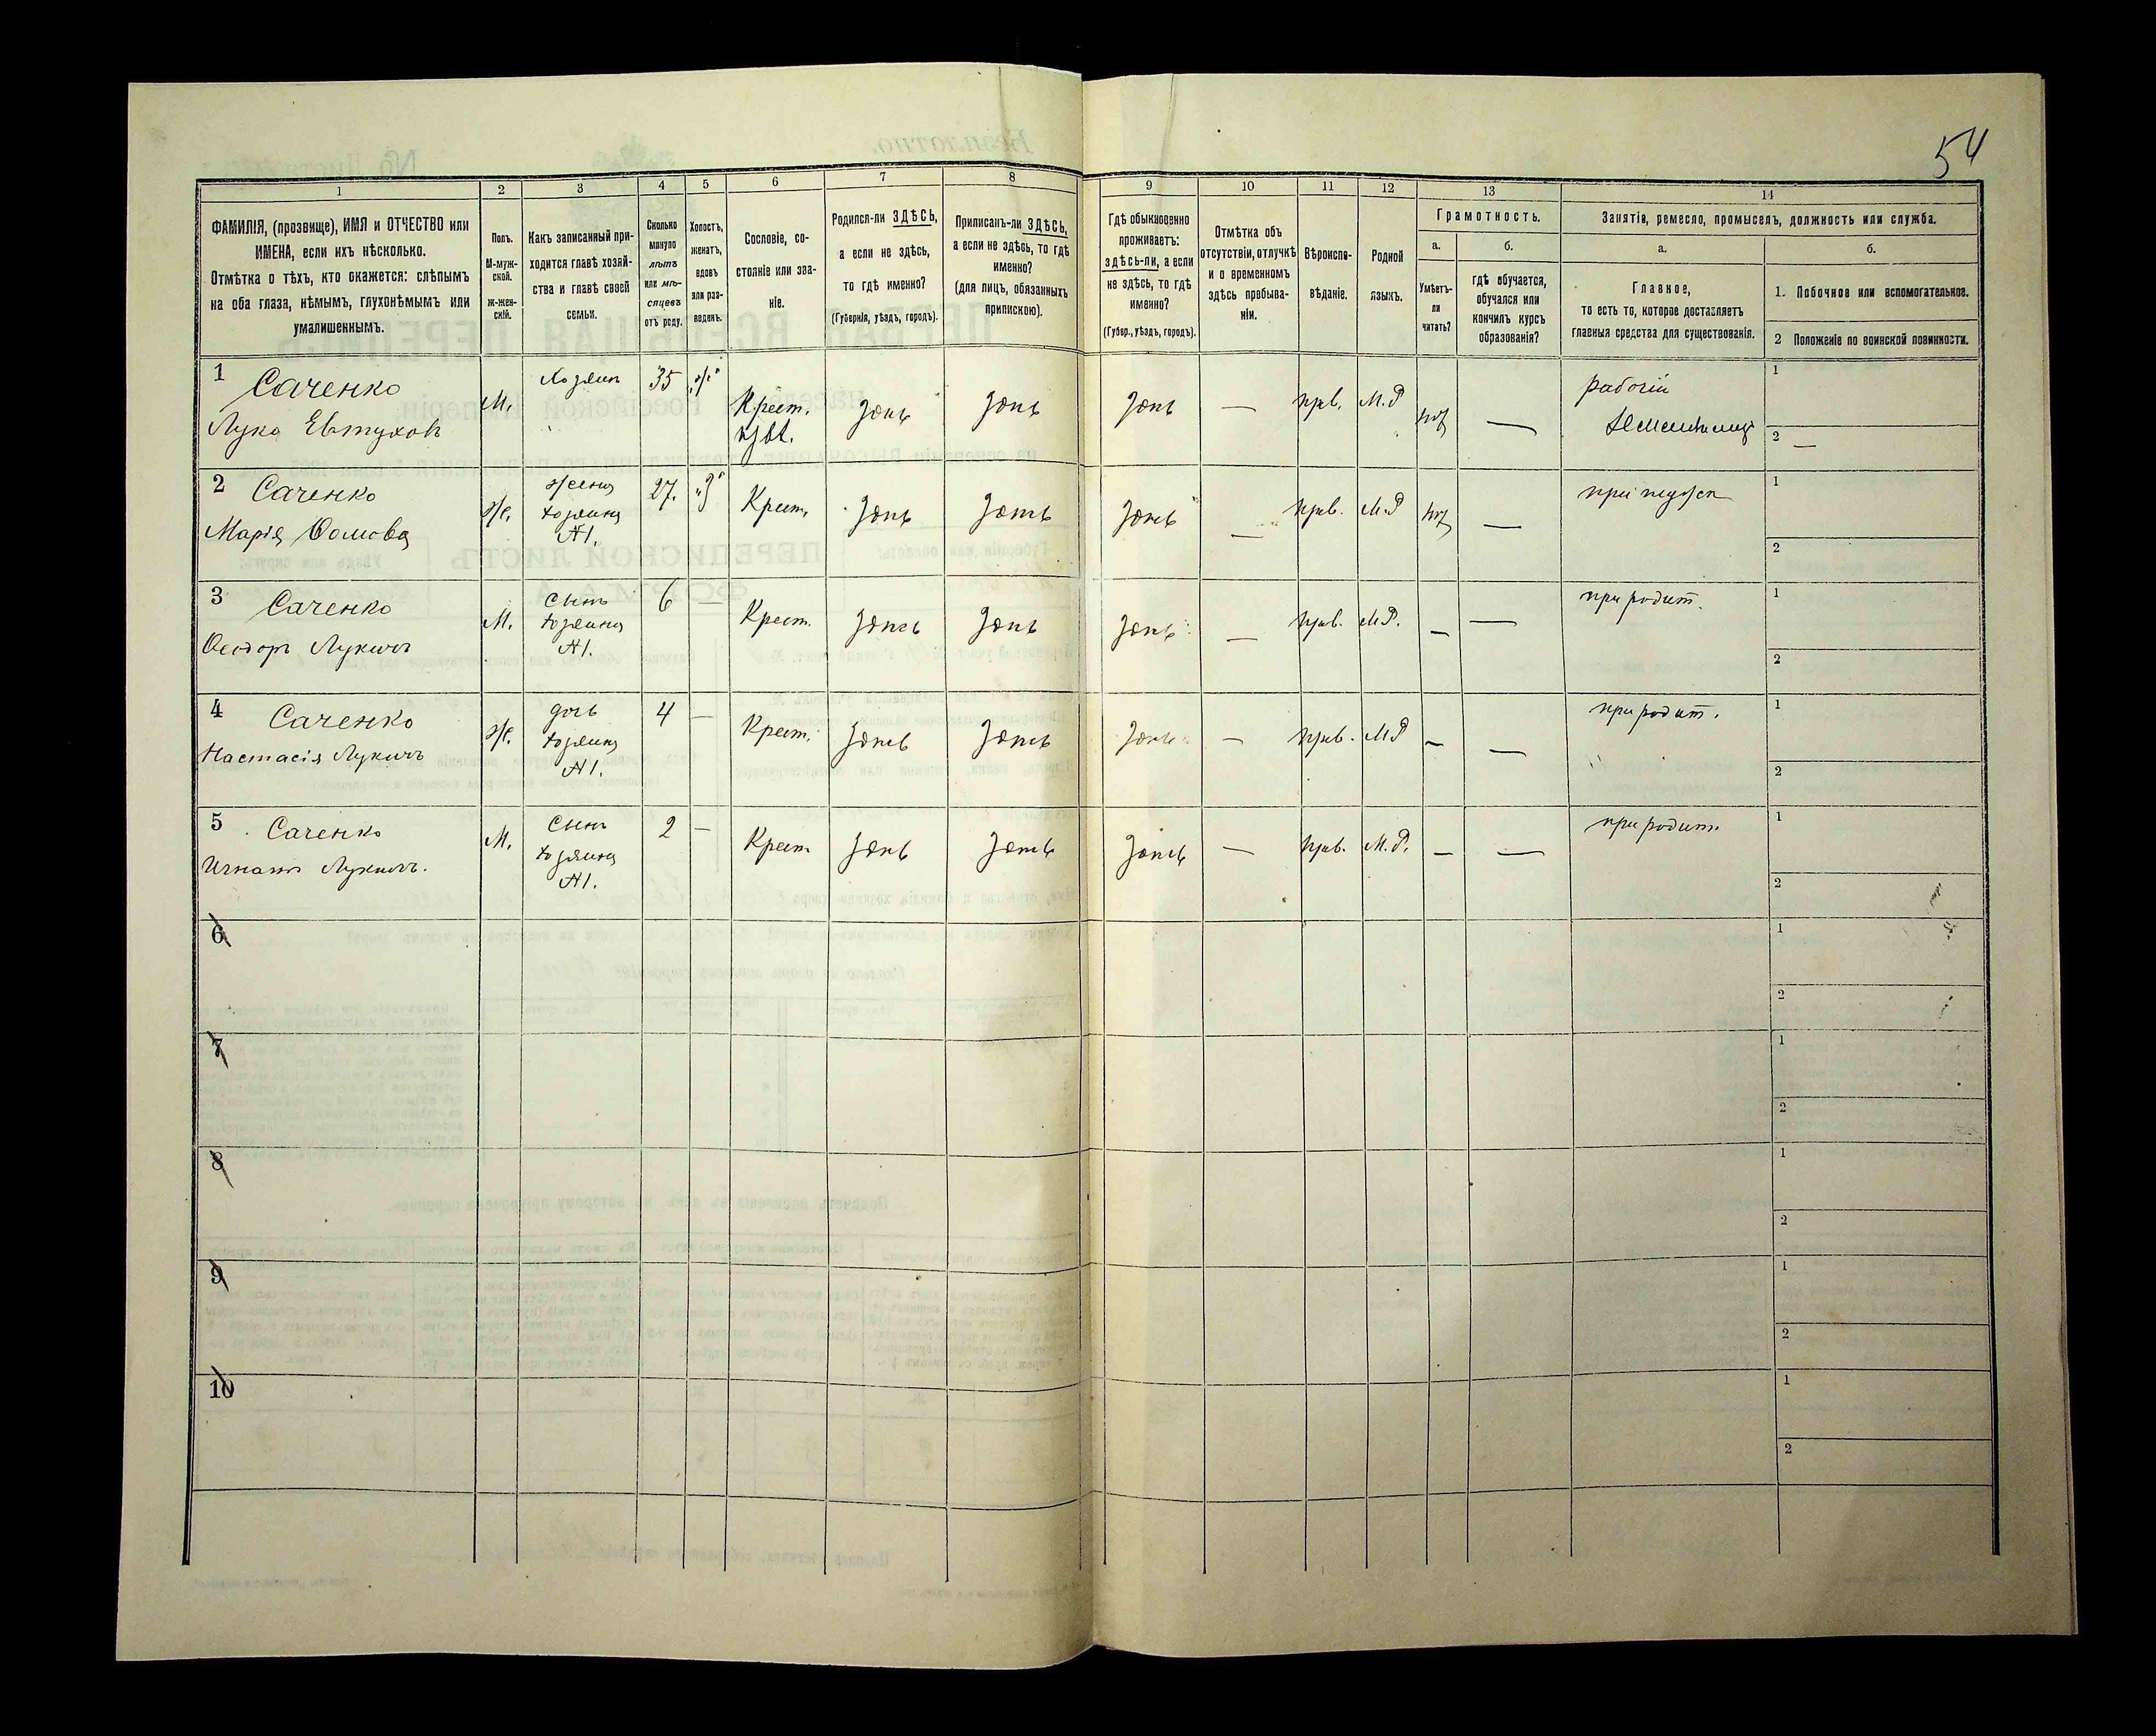 54
1
2
3
4
5
6
7
8
9
10
11
12
13
14
ФАМИЛІЯ, (прозвище), ИМЯ и ОТЧЕСТВО или
ИМЕНА, если ихъ нѣсколько.
Отмѣтка о тѣхъ, кто окажется: слѣпымъ
на оба глаза, нѣмымъ, глухонѣмымъ или
умалишеннымъ.
Полъ.
М-муж-
ской.
Ж-жен-
скій.
Какъ записанный при-
ходится главѣ хозяй-
ства и главѣ своей
семьи.
Сколько
минуло
лѣтъ
или мѣ-
сяцевъ
отъ роду.
Холостъ,
женатъ,
вдовъ
или раз-
веденъ.
Сословіе, со-
стояніе или зва-
ніе.
Родился-ли ЗДѢСЬ,
а если не здѣсь,
то гдѣ именно?
(Губернія, уѣздъ, городъ).
Приписанъ-ли ЗДѢСЬ,
а если не здѣсь, то гдѣ
именно?
(для лицъ, обязанныхъ
припискою).
Гдѣ обыкновенно
проживаетъ:
здѣсь-ли, а если
не здѣсь, то гдѣ
именно?
(Губер., уѣздъ, городъ).
Отмѣтка объ
отсутствіи, отлучкѣ
и о временномъ
здѣсь пребыва-
ніи.
Вѣроиспо-
вѣданіе.
Родной
языкъ.
Грамотность.
а.
Умѣетъ-
ли
читать?
б.
гдѣ обучается,
обучался или
кончилъ курсъ
образованія?
Занятіе, ремесло, промыселъ, должность или служба.
а.
Главное,
то есть то, которое доставляетъ
главныя средства для существованія.
б.
1. Побочное или вспомогательное.
2 Положеніе по воинской повинности.
1 Саченко
Лука Евтуховъ
М.
Хозяин
35
"ж"
Крест.
здѣсь
здѣсь
здѣсь
—
прв.
М.Р
нѣт
—
рабочій
1
2 —
2 Саченко
Марія Ѳомова
Ж.
жена
хозяина
№1.
27.
"З"
Крест.
здѣсь
здѣсь
здѣсь
—
прв.
М.Р
нѣт
—
1
2
3 Саченко
Ѳеодоръ Лукичъ
М.
Сынъ
хозяина
№1.
6
—
Крест.
здѣсь
здѣсь
здѣсь
—
прв.
М.Р.
—
—
при родит.
1
2
4 Саченко
Настасія Лукичъ
Ж.
дочь
хозяина
№1.
4
—
Крест.
здѣсь
здѣсь
здѣсь
—
прв.
М.Р
—
—
при родит.
1
2
5 Саченко
Игнатъ Лукичъ.
М.
Сынъ
хозяина
№1.
2
—
Крест
здѣсь
здѣсь
здѣсь
—
прв.
М.Р.
—
—
при родит.
1
2
6
1
2
7
1
2
8
1
2
9
1
2
10
1
2